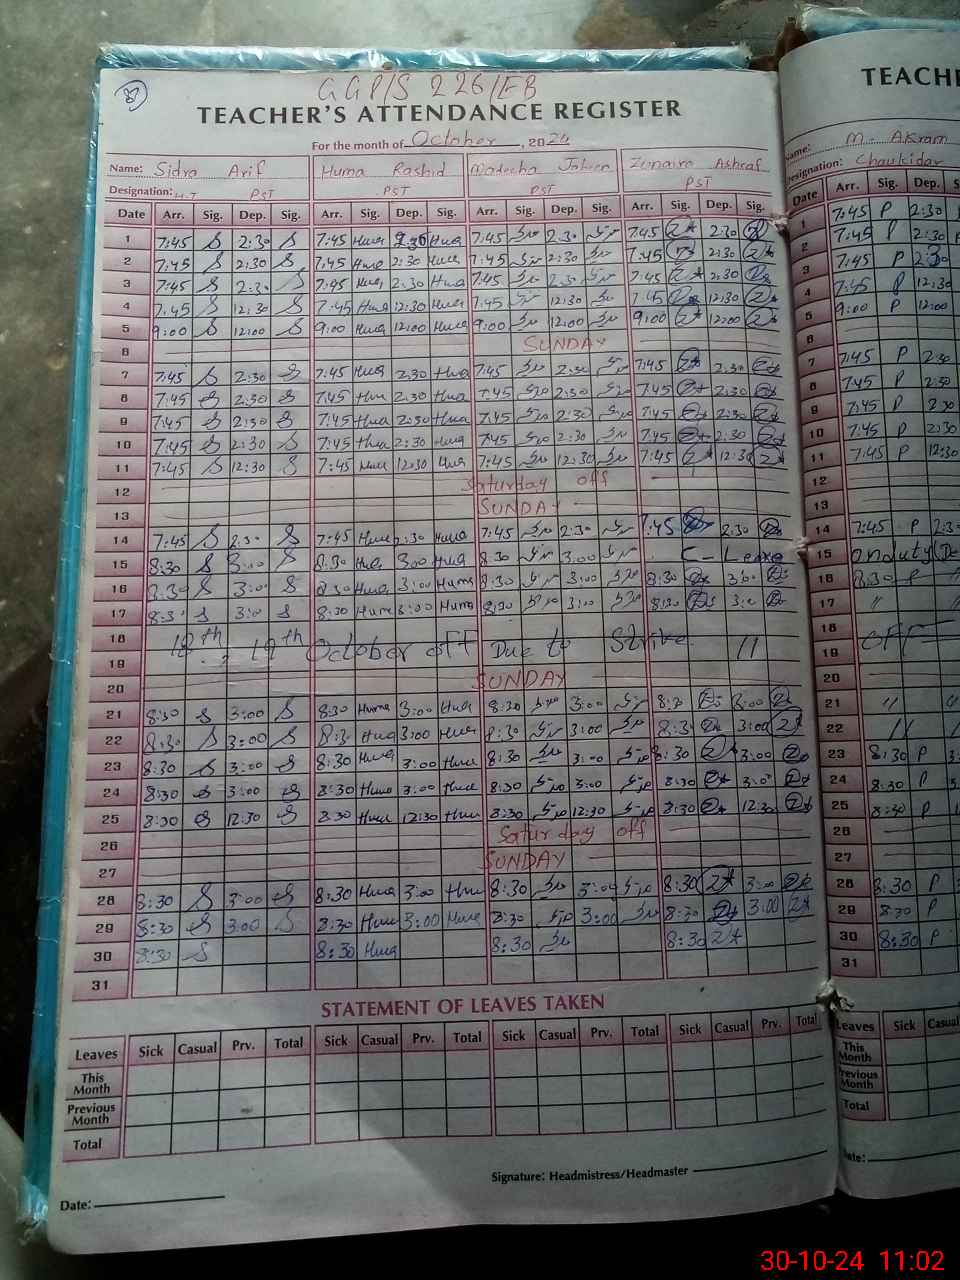 GGP/S 226/EB
TEACHER'S ATTENDANCE REGISTER
For the month of October, 2024
Name: Sidra Arif Huma Rashid Madeeha Zunaira Ashraf
Designation: H.T PST PST PST PST
Date Arr. Sig. Dep. Sig. Arr. Sig. Dep. Sig. Arr. Sig. Dep. Sig. Arr. Sig. Dep. Sig.
1 7:45 2:30 7:45 Huma 2:30 Huma 7:45 2:30 7:45 2:30
2 7:45 2:30 7:45 Huma 2:30 Huma 7:45 2:30 7:45 2:30
3 7:45 2:30 7:45 Huma 2:30 Huma 7:45 2:30 7:45 2:30
4 7:45 12:30 7:45 Huma 12:30 Huma 7:45 12:30 7:45 12:30
5 9:00 12:00 9:00 Huma 12:00 Huma 9:00 12:00 9:00 12:00
6 SUNDAY
7 7:45 2:30 7:45 Huma 2:30 Huma 7:45 2:30 7:45 2:30
8 7:45 2:30 7:45 Huma 2:30 Huma 7:45 2:30 7:45 2:30
9 7:45 2:30 7:45 Huma 2:30 Huma 7:45 2:30 7:45 2:30
10 7:45 2:30 7:45 Huma 2:30 Huma 7:45 2:30 7:45 2:30
11 7:45 12:30 7:45 Huma 12:30 Huma 7:45 12:30 7:45 12:30
12 Saturday off
13 SUNDAY
14 7:45 2:30 7:45 Huma 2:30 Huma 7:45 2:30 7:45 2:30
15 8:30 3:00 8:30 Huma 3:00 Huma 8:30 3:00 C - Leave
16 8:30 3:00 8:30 Huma 3:00 Huma 8:30 3:00 8:30 3:00
17 8:30 3:00 8:30 Huma 3:00 Huma 8:30 3:00 8:30 3:00
18 18th 19th October off Due to Strike
19
20 SUNDAY
21 8:30 3:00 8:30 Huma 3:00 Huma 8:30 3:00 8:30 3:00
22 8:30 3:00 8:30 Huma 3:00 Huma 8:30 3:00 8:30 3:00
23 8:30 3:00 8:30 Huma 3:00 Huma 8:30 3:00 8:30 3:00
24 8:30 3:00 8:30 Huma 3:00 Huma 8:30 3:00 8:30 3:00
25 8:30 12:30 8:30 Huma 12:30 Huma 8:30 12:30 8:30 12:30
26 Saturday off
27 SUNDAY
28 8:30 3:00 8:30 Huma 3:00 Huma 8:30 3:00 8:30 3:00
29 8:30 3:00 8:30 Huma 3:00 Huma 8:30 3:00 8:30 3:00
30 8:30 8:30 Huma 8:30 8:30
31
STATEMENT OF LEAVES TAKEN
Leaves Sick Casual Prv. Total Sick Casual Prv. Total Sick Casual Prv. Total Sick Casual Prv. Total
This Month
Previous Month
Total
Signature: Headmistress/Headmaster
Date:
TEACH
Name: M. Akram
Designation: Chaukidar
Date Arr. Sig. Dep.
7:45 P 2:30
1 7:45 P 2:30
2 7:45 P 2:30
3
4 7:45 P
5 9:00 P 12:00
6
7 7:45 P 2:30
8 7:45 P 2:30
9 7:45 P 2:30
10 7:45 P 2:30
11 7:45 P 12:30
12
13
14 7:45 P 2:3
15 on duty
16 8:30 P
17 "
18 OFF
19
20
21 "
22 "
23 8:30 P
24 8:30 P
25 8:30 P
26
27
28 8:30 P
29 8:30 P
30 8:30 P
31
Leaves Sick Casual
This Month
Previous Month
Total
Date:
30-10-24 11:02